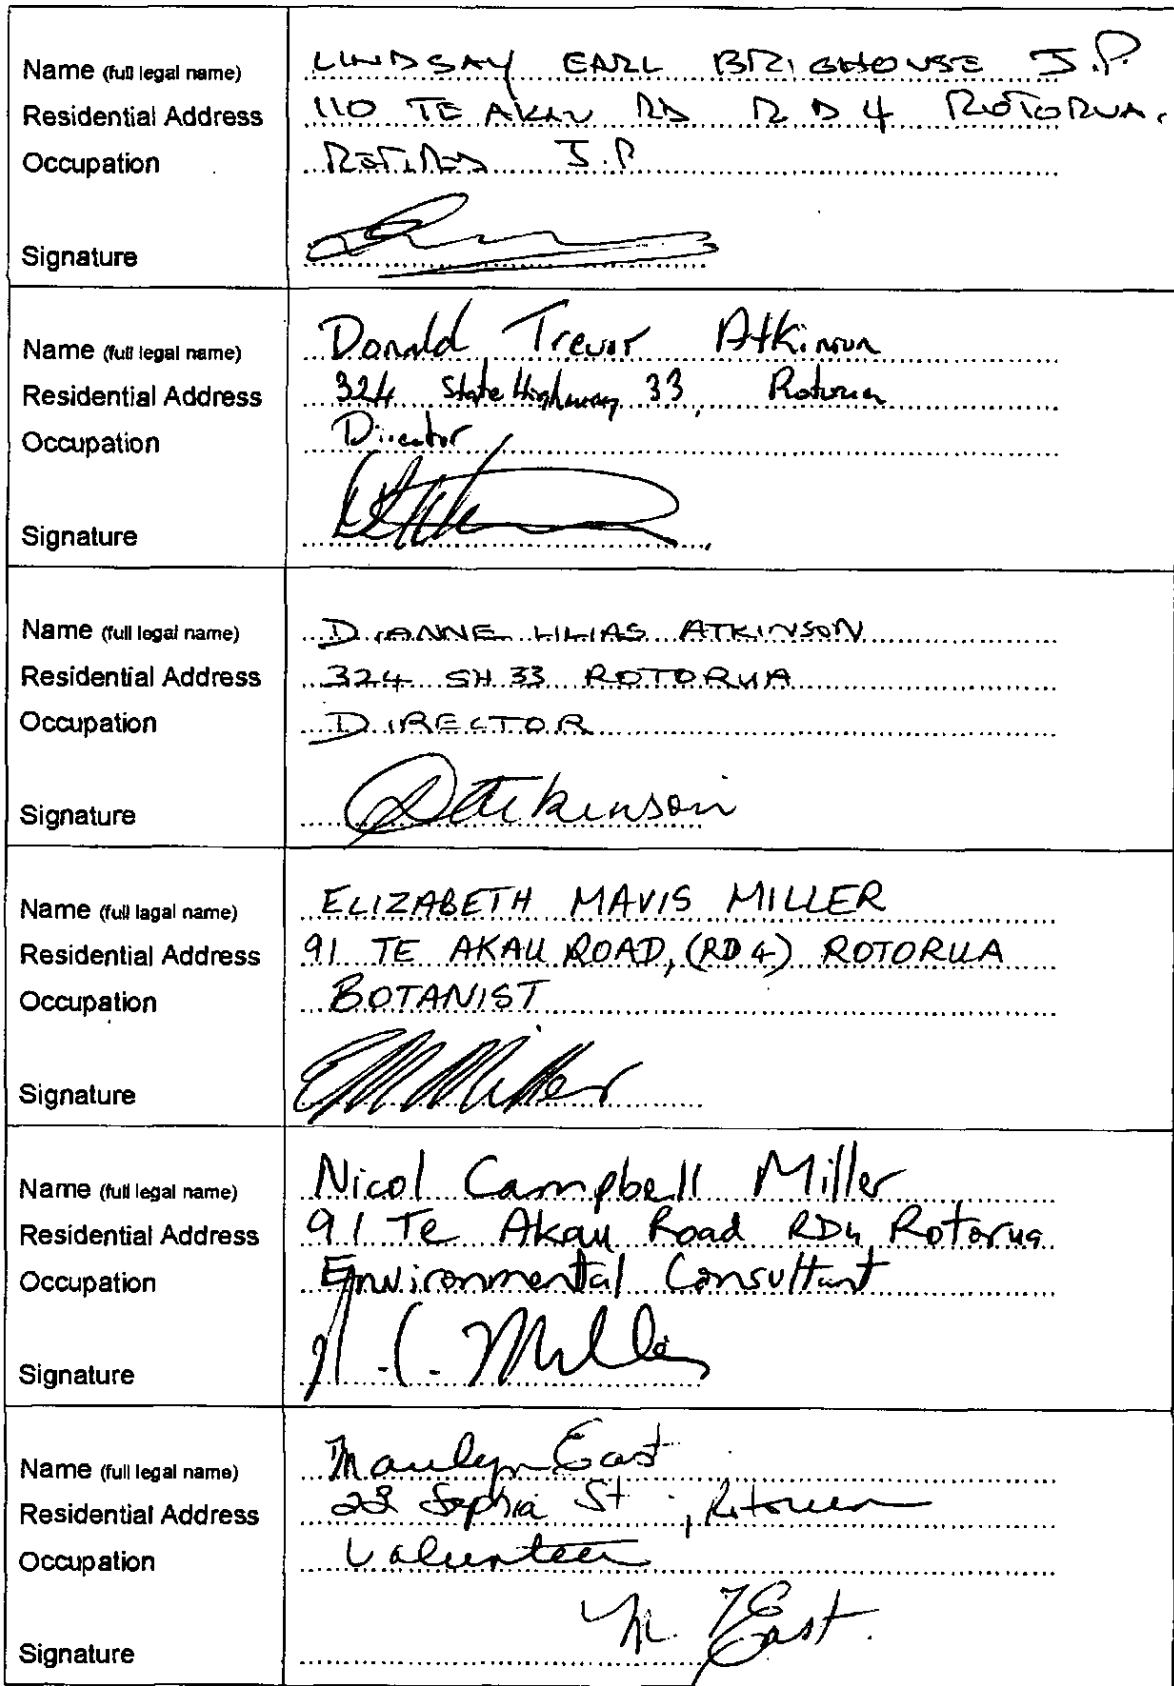 Name (full legal name) LINDSAY EARL BRIGHOUSE J.P.
Residential Address 110 TE AKAU RD R D 4 ROTORUA.
Occupation RETIRED J.P.
Signature
Name (full legal name) Donald Trevor Atkinson
Residential Address 324 State Highway 33, Rotorua
Occupation Director
Signature
Name (full legal name) DIANNE LILIAS ATKINSON
Residential Address 324 SH 33 ROTORUA
Occupation DIRECTOR
Signature DAtkinson
Name (full legal name) ELIZABETH MAVIS MILLER
Residential Address 91 TE AKAU ROAD, (RD 4) ROTORUA
Occupation BOTANIST
Signature EMMiller
Name (full legal name) Nicol Campbell Miller
Residential Address 91 Te Akau Road RD4 Rotorua
Occupation Environmental Consultant
Signature N.C. Miller
Name (full legal name) Marilyn East
Residential Address Sophia St, Rotorua
Occupation Volunteer
Signature M. East.